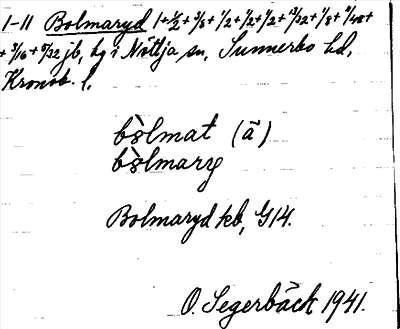 1-11 Bolmaryd 1+1/2+3/8+1/2+1/2+1/2+13/32+1/8+11/48+
+3/16+5/32 jb, by i Nöttja sn, Sunnerbo hd,
Kronob. l.
(ā)
Bolmaryd kb, G14.
O. Segerbäck 1941.